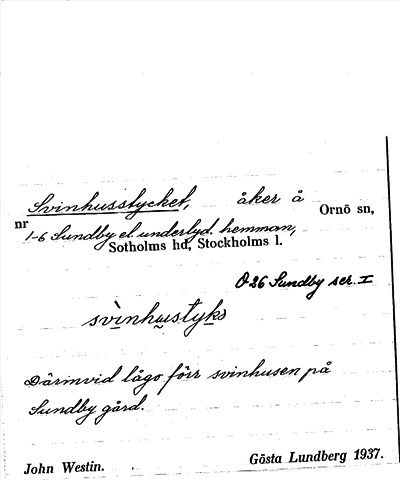 Svinhusstycket, åker å Ornö sn,
nr 1-6 Sundby el. underlyd. hemman,
Sotholms hd, Stockholms l.
Ö 26 Sundby ser. I
svinhustyks
Därinvid lågo förr svinhusen på
Sundby gård.
John Westin. Gösta Lundberg 1937.